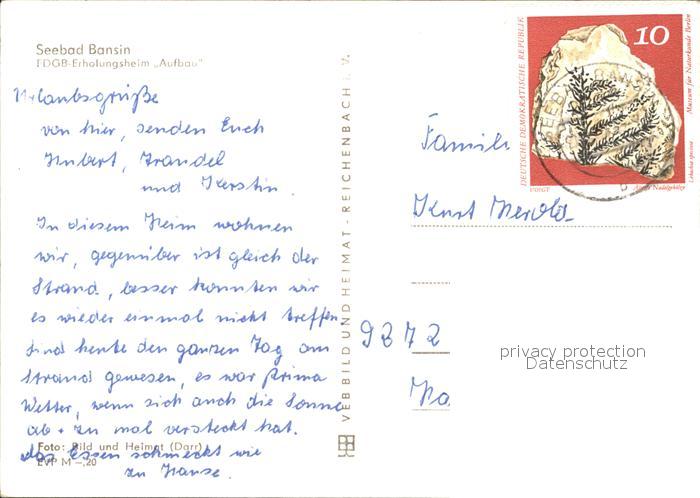 Seebad Bansin
FDGB-Erholungsheim „Aufbau"
Urlaubsgrüße
von hier, senden Euch
Hubert, Traudel
und Kerstin.
In diesem Heim wohnen
wir, gegenüber ist gleich der
Strand, besser konnten wir
es wieder einmal nicht treffen
Sind heute den ganzen Tag am
Strand gewesen, es war prima
Wetter, wenn sich auch die Sonne
ab + zu mal versteckt hat.
das Essen schmeckt wie
zu Hause.
Foto: Bild und Heimat (Darr)
EVP M –,20
VEB BILD UND HEIMAT · REICHENBACH i. V.
DEUTSCHE DEMOKRATISCHE REPUBLIK
10
Museum für Naturkunde Berlin
Lebachia speciosa
VOIGT
Nadelgehölze
Familie
Kurt
9372
privacy protection
Datenschutz